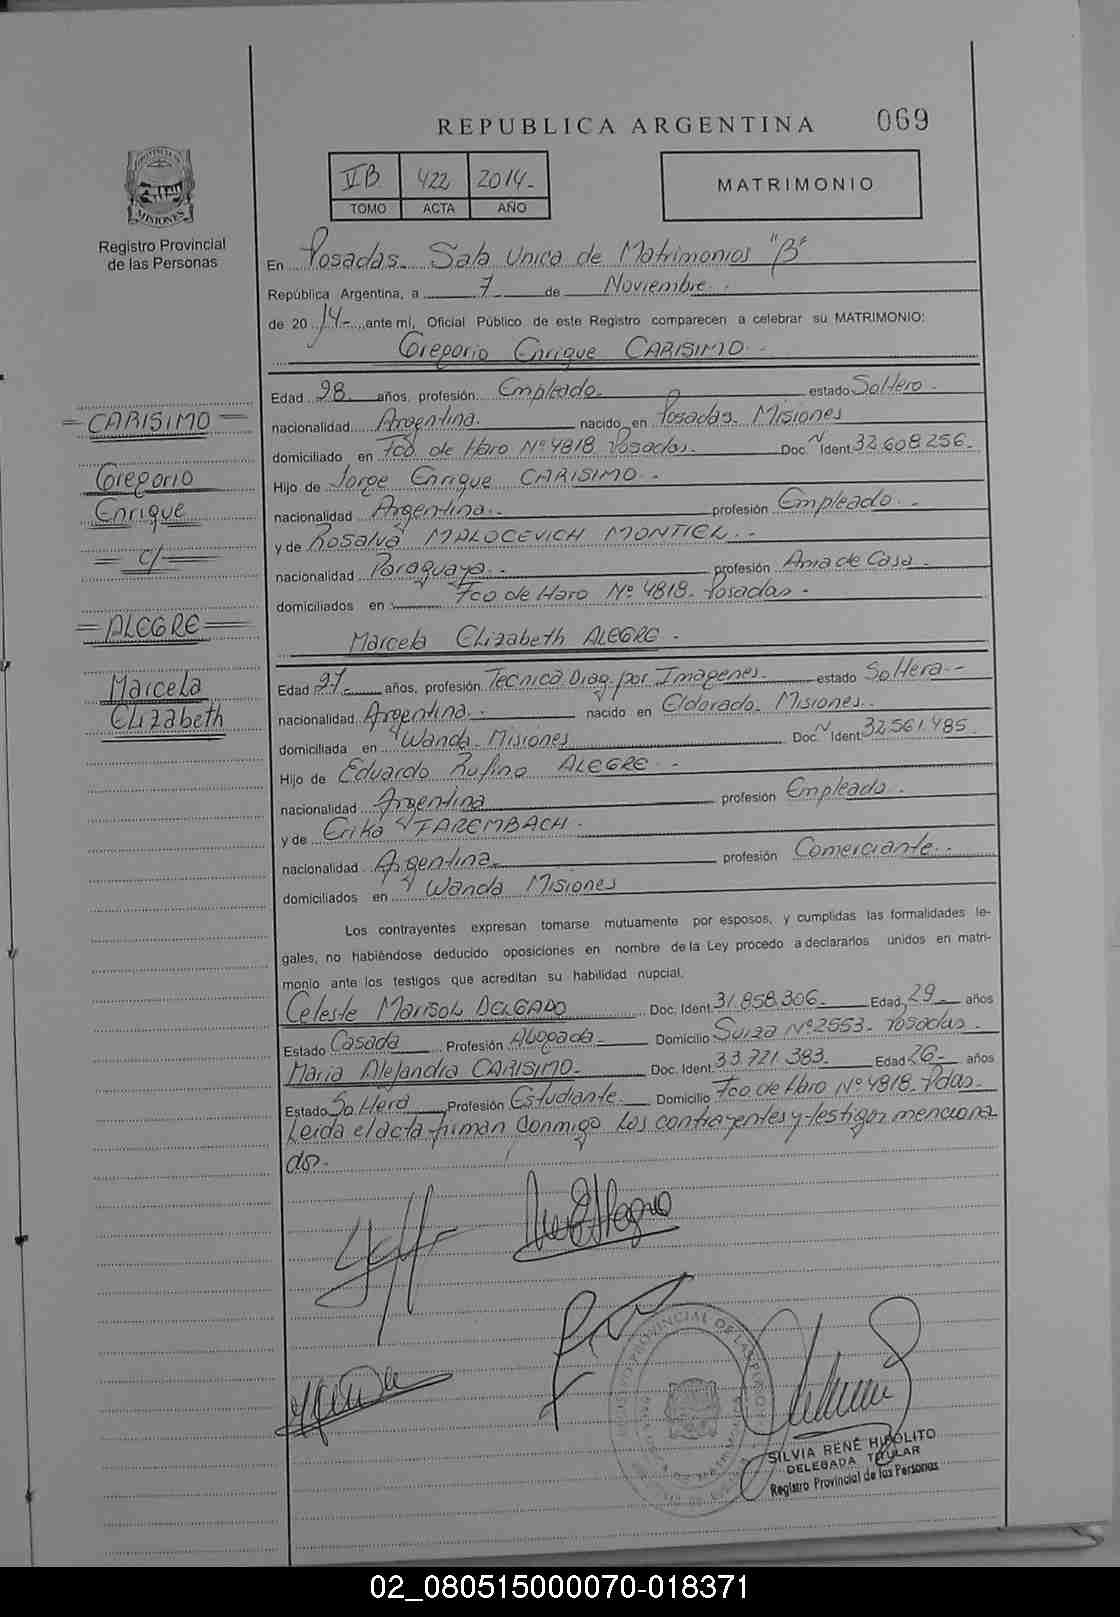 REPUBLICA ARGENTINA 069
PROVINCIA DE
MISIONES
Registro Provincial
de las Personas
VB 422 2014-
TOMO ACTA AÑO
MATRIMONIO
En Posadas. Sala Unica de Matrimonios "B"
República Argentina, a 7 de Noviembre.
de 2014- ante mí, Oficial Público de este Registro comparecen a celebrar su MATRIMONIO:
Gregorio Enrique CARISIMO.
=CARISIMO=
Gregorio
Enrique
= c/ =
=ALEGRE=
Marcela
Elizabeth
Edad 28 años, profesión Empleado. estado Soltero.
nacionalidad Argentina. nacido en Posadas. Misiones
domiciliado en Fco de Haro Nº 4818 Posadas. Doc. N Ident. 32.608.256.
Hijo de Jorge Enrique CARISIMO.
nacionalidad Argentina. profesión Empleado.
y de Rosalva MALOCEVICH MONTIEL.
nacionalidad Paraguaya. profesión Ama de Casa.
domiciliados en Fco de Haro Nº 4818. Posadas.
Marcela Elizabeth ALEGRE.
Edad 27- años, profesión Tecnica Diag. por Imagenes. estado Soltera-
nacionalidad Argentina. nacido en Eldorado. Misiones.
domiciliada en Wanda Misiones Doc. N Ident. 32.561.485.
Hijo de Eduardo Rufino ALEGRE.
nacionalidad Argentina profesión Empleado.
y de Erika TAREMBACH.
nacionalidad Argentina. profesión Comerciante.
domiciliados en Wanda Misiones
Los contrayentes expresan tomarse mutuamente por esposos, y cumplidas las formalidades le-
gales, no habiéndose deducido oposiciones en nombre de la Ley procedo a declararlos unidos en matri-
monio ante los testigos que acreditan su habilidad nupcial.
Celeste Marisol DELGADO Doc. Ident. 31.858.306. Edad 29 años
Estado Casada Profesión Abogada. Domicilio Suiza Nº 2553. Posadas.
Maria Alejandra CARISIMO. Doc. Ident. 33.721.383. Edad 26- años
Estado Soltera Profesión Estudiante. Domicilio Fco de Haro Nº 4818. Pdas.
Leida el acta firman conmigo los contrayentes y testigos menciona
dos-
SILVIA RENÉ HIPÓLITO
DELEGADA TITULAR
Registro Provincial de las Personas
02_080515000070-018371